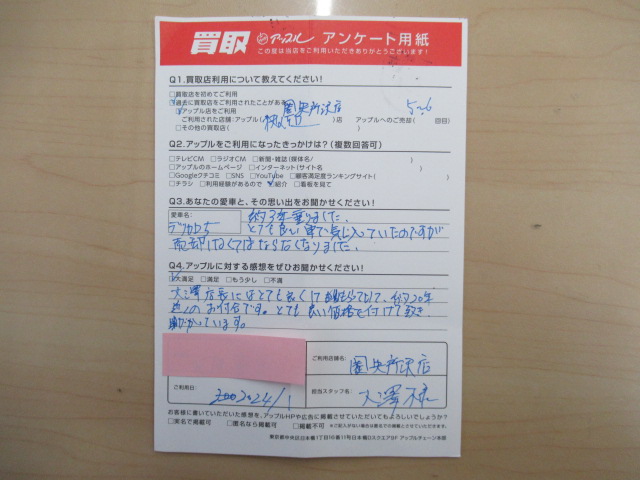 買取 アップル アンケート用紙
この度は当店をご利用いただきありがとうございます!
Q1.買取店利用について教えてください!
□買取店を初めてご利用
□過去に買取店をご利用されたことがある
□アップル店をご利用
ご利用された店舗:アップル( 圏央所沢店 )店 アップルへのご売却( 5~6 回目)
□その他の買取店( )
Q2.アップルをご利用になったきっかけは?(複数回答可)
□テレビCM □ラジオCM □新聞・雑誌(媒体名/ )
□アップルのホームページ □インターネット(サイト名 )
□Googleクチコミ □SNS □YouTube □顧客満足度ランキングサイト( )
□チラシ □利用経験があるので □紹介 □看板を見て
Q3.あなたの愛車と、その思い出をお聞かせください!
愛車名
デリカD5
約3年乗りました。
とても良い車で気に入っていたのですが
売却しなくてはならなくなりました。
Q4.アップルに対する感想をぜひお聞かせください!
□大満足 □満足 □もう少し □不満
大澤店長にはとても良くして
約20年
のお付合です。とても良い価格を付けて頂き
助かっています。
ご利用店舗名:
圏央所沢店
ご利用日:
担当スタッフ名:
大澤様
お客様に書いていただいた感想を、アップルHPや広告に掲載させていただいてもよろしいでしょうか?
□実名で掲載可 □匿名なら掲載可 □掲載不可 ※ご記入がない場合は匿名での掲載とさせていただきます。
東京都中央区日本橋1丁目16番11号日本橋Dスクエア8F アップルチェーン本部